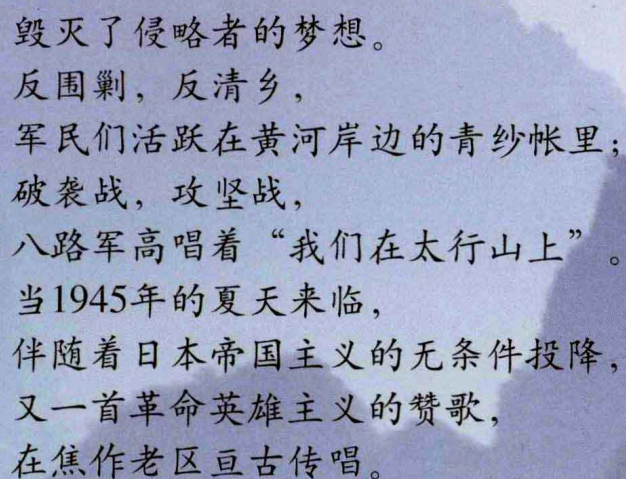 毁灭了侵略者的梦想。
反围剿，反清乡，
军民们活跃在黄河岸边的青纱帐里；
破袭战，攻坚战，
八路军高唱着“我们在太行山上”。
当1945年的夏天来临，
伴随着日本帝国主义的无条件投降，
又一首革命英雄主义的赞歌，
在焦作老区亘古传唱。